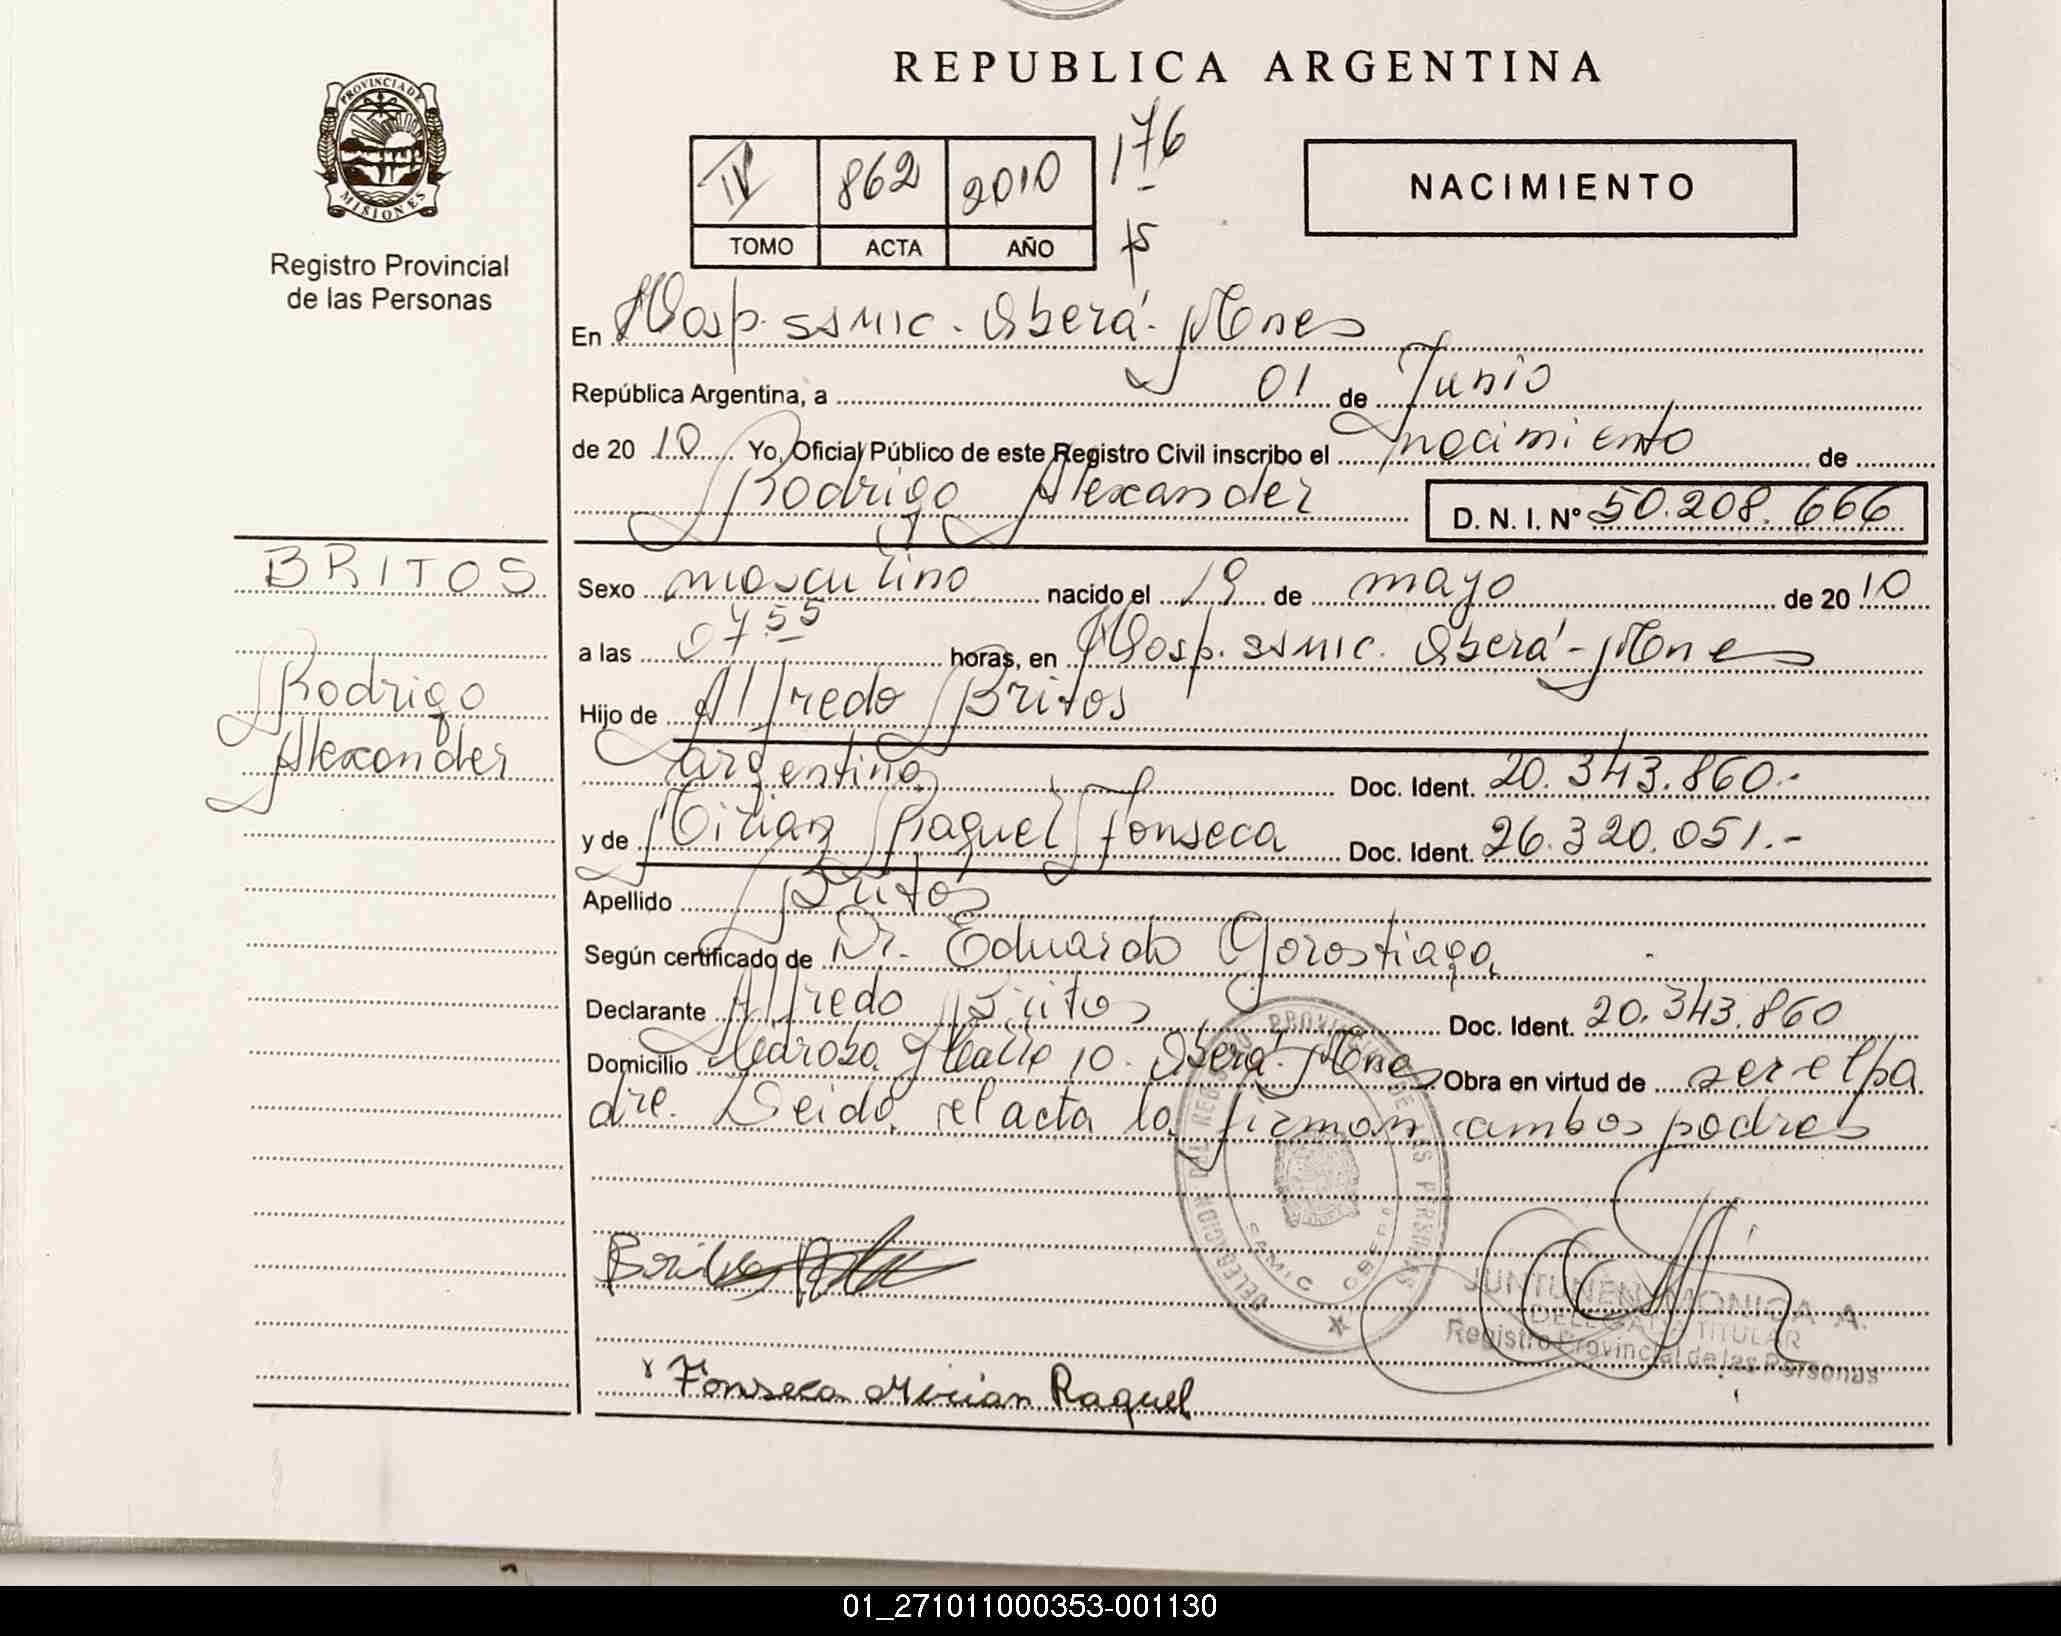 REPUBLICA ARGENTINA
PROVINCIA DE
MISIONES
Registro Provincial
de las Personas
IV 862 2010 176
TOMO ACTA AÑO 75
NACIMIENTO
En Hosp. SAMIC. Oberá. Mnes
República Argentina, a 01 de Junio
de 2010 Yo, Oficial Público de este Registro Civil inscribo el nacimiento de
Rodrigo Alexander D. N. I. Nº 50.208.666
BRITOS
Rodrigo
Alexander
Sexo masculino nacido el 19 de mayo de 2010
a las 0755 horas, en Hosp. SAMIC. Oberá - Mnes
Hijo de Alfredo Britos
argentino Doc. Ident. 20.343.860.-
y de Mirian Raquel Fonseca Doc. Ident. 26.320.051.-
Apellido Britos
Según certificado de Dr. Eduardo Gorostiaga
Declarante Alfredo Britos Doc. Ident. 20.343.860
Domicilio 10. Oberá. Mnes Obra en virtud de ser el pa
dre. Leida el acta la firman ambos padres
DELEGACION DEL REGISTRO PROVINCIAL DE LAS PERSONAS
SAMIC OBERA
JUNTUNEN MONICA A.
DELEGADA TITULAR
Registro Provincial de las Personas
Britos
Fonseca Mirian Raquel
01_271011000353-001130